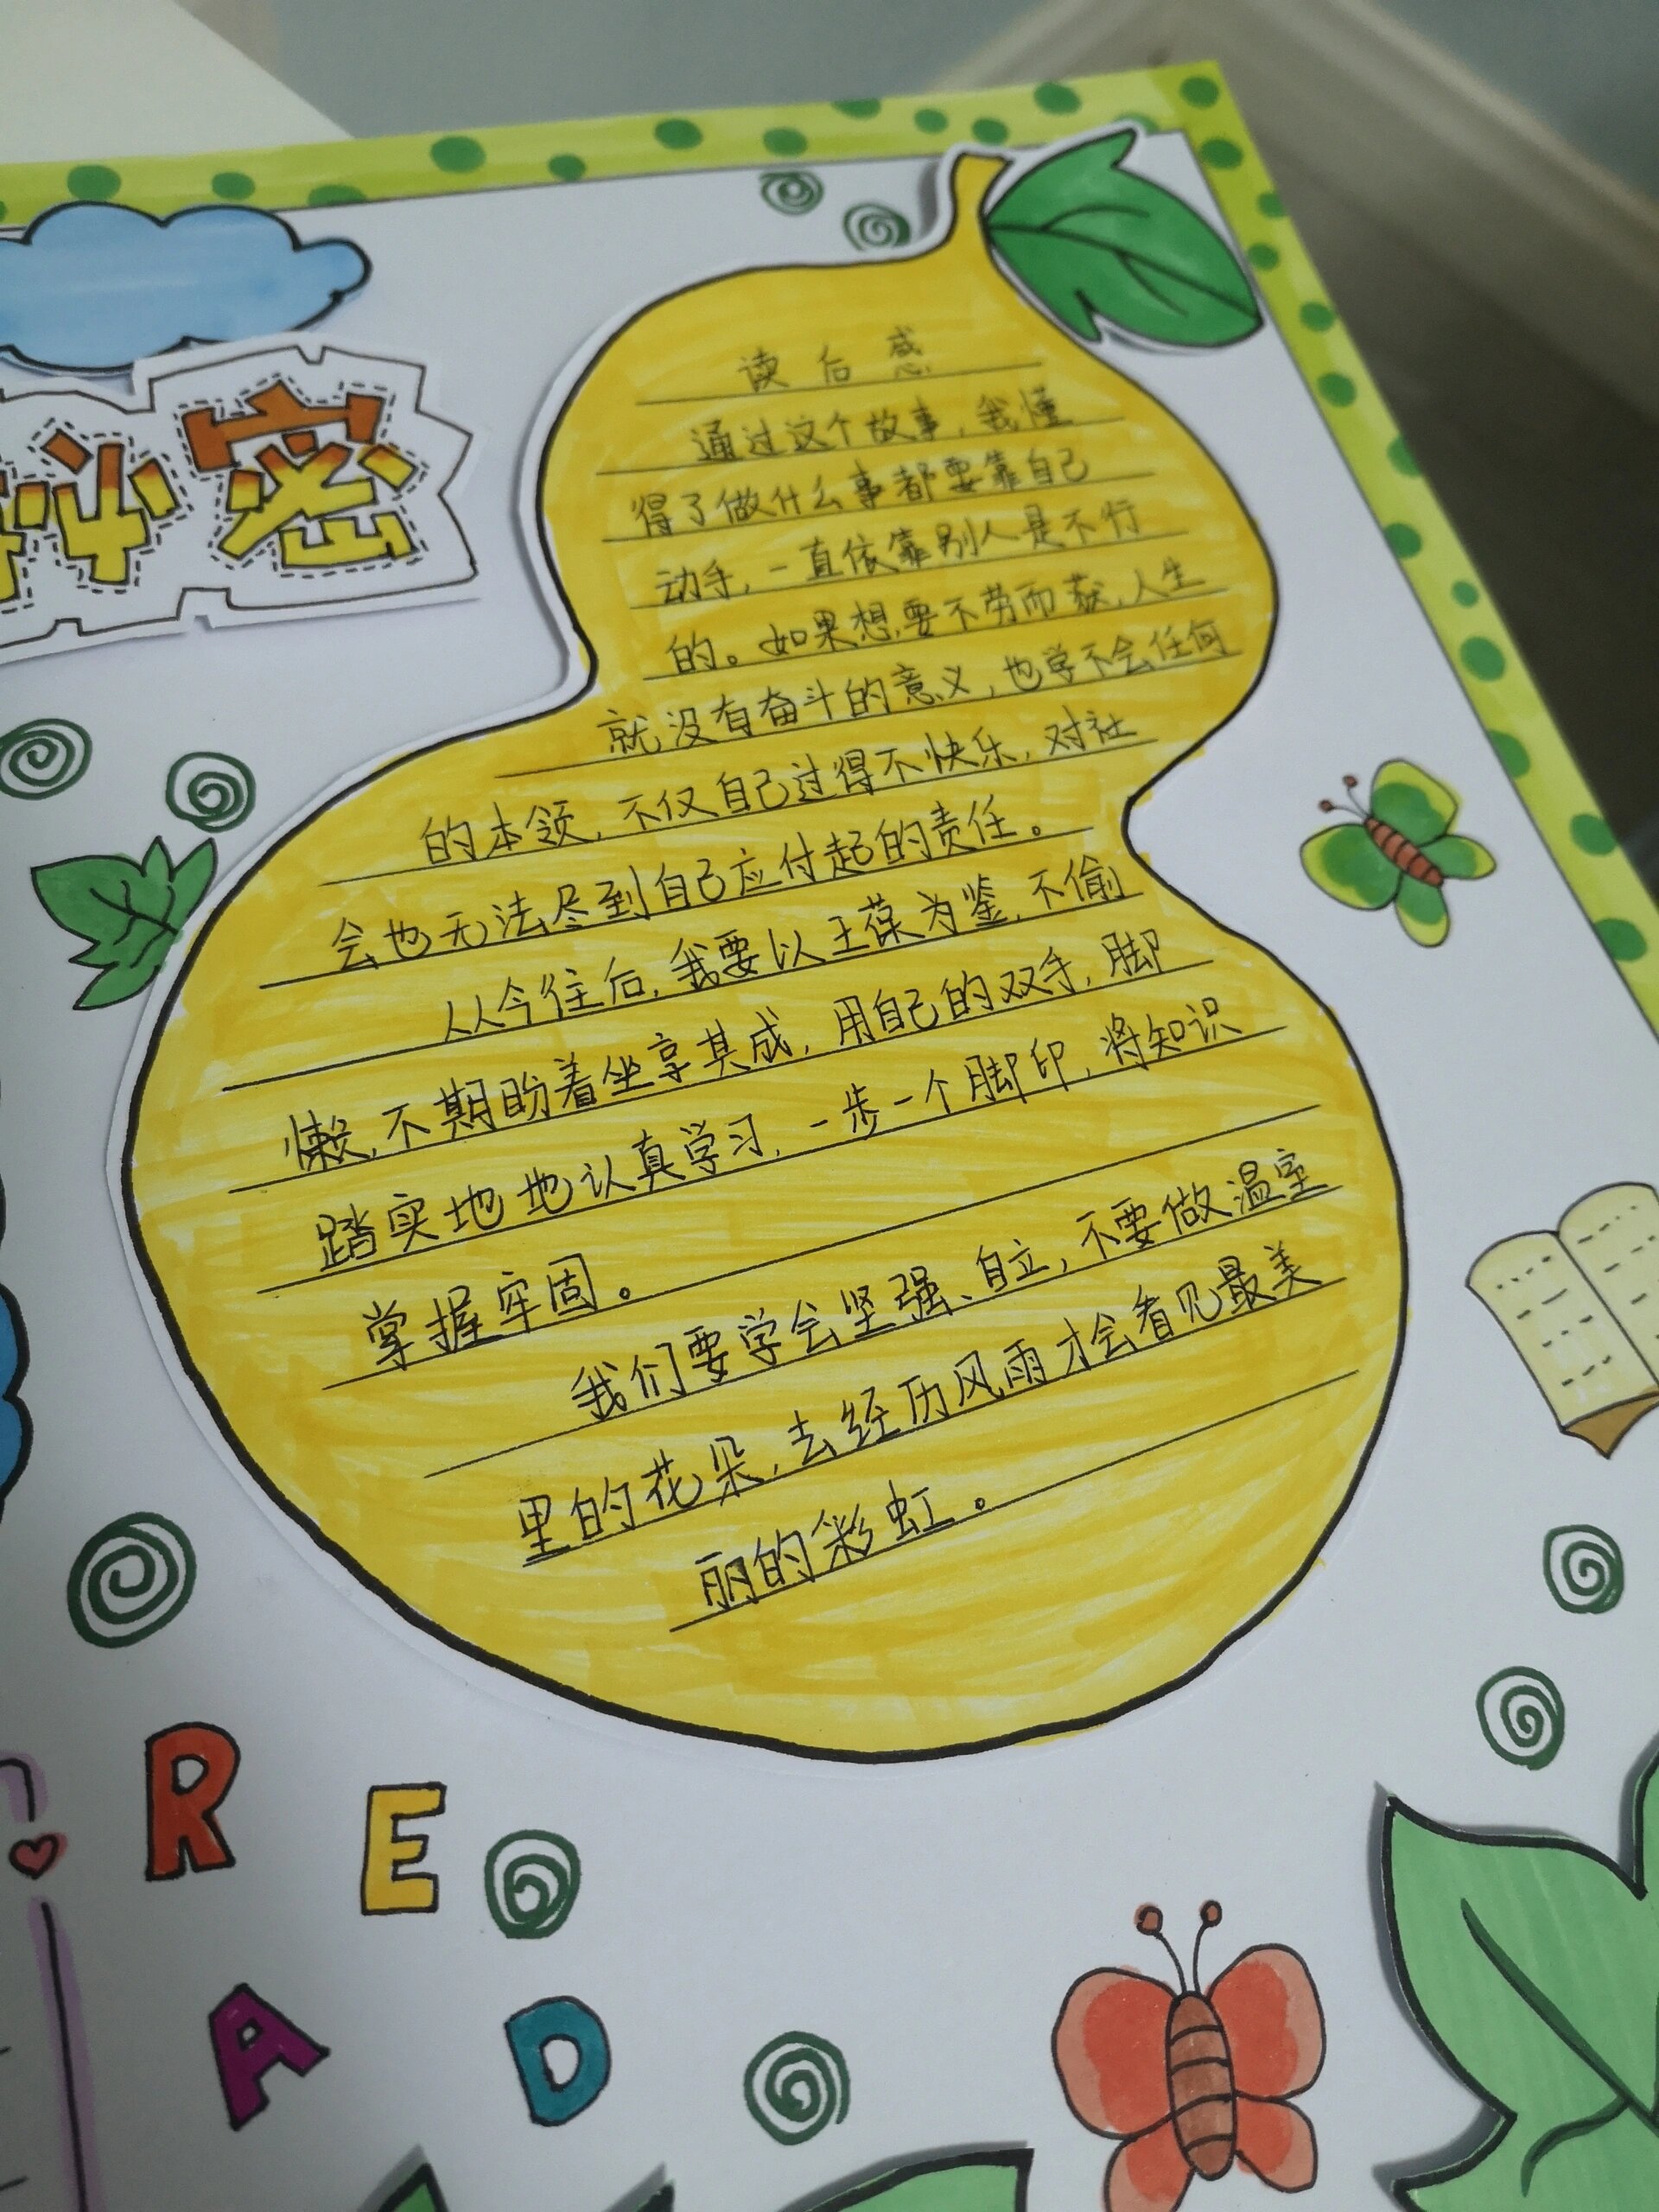 秘密
读后感
通过这个故事，我懂
得了做什么事都要靠自己
动手，一直依靠别人是不行
的。如果想要不劳而获，人生
就没有奋斗的意义，也学不会任何
的本领，不仅自己过得不快乐，对社
会也无法尽到自己应付起的责任。
从今往后，我要以王葆为鉴，不偷
懒，不期盼着坐享其成，用自己的双手，脚
踏实地地认真学习，一步一个脚印，将知识
掌握牢固。
我们要学会坚强、自立，不要做温室
里的花朵，去经历风雨才会看见最美
丽的彩虹。
R E
A D